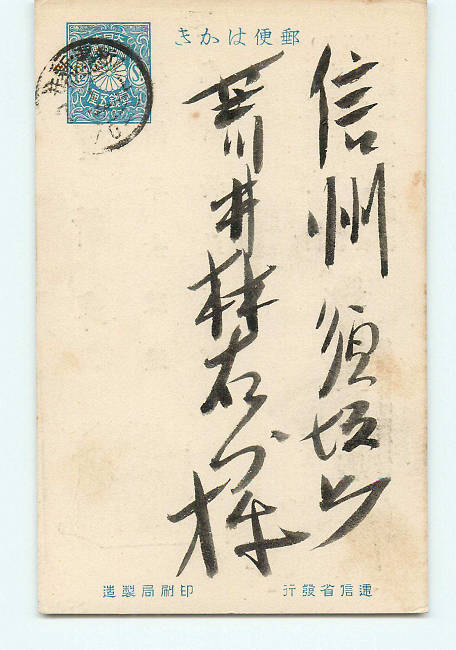 郵便はかき
壹錢五厘
信州須坂
荒井 右 様
遞信省發行
印刷局製造